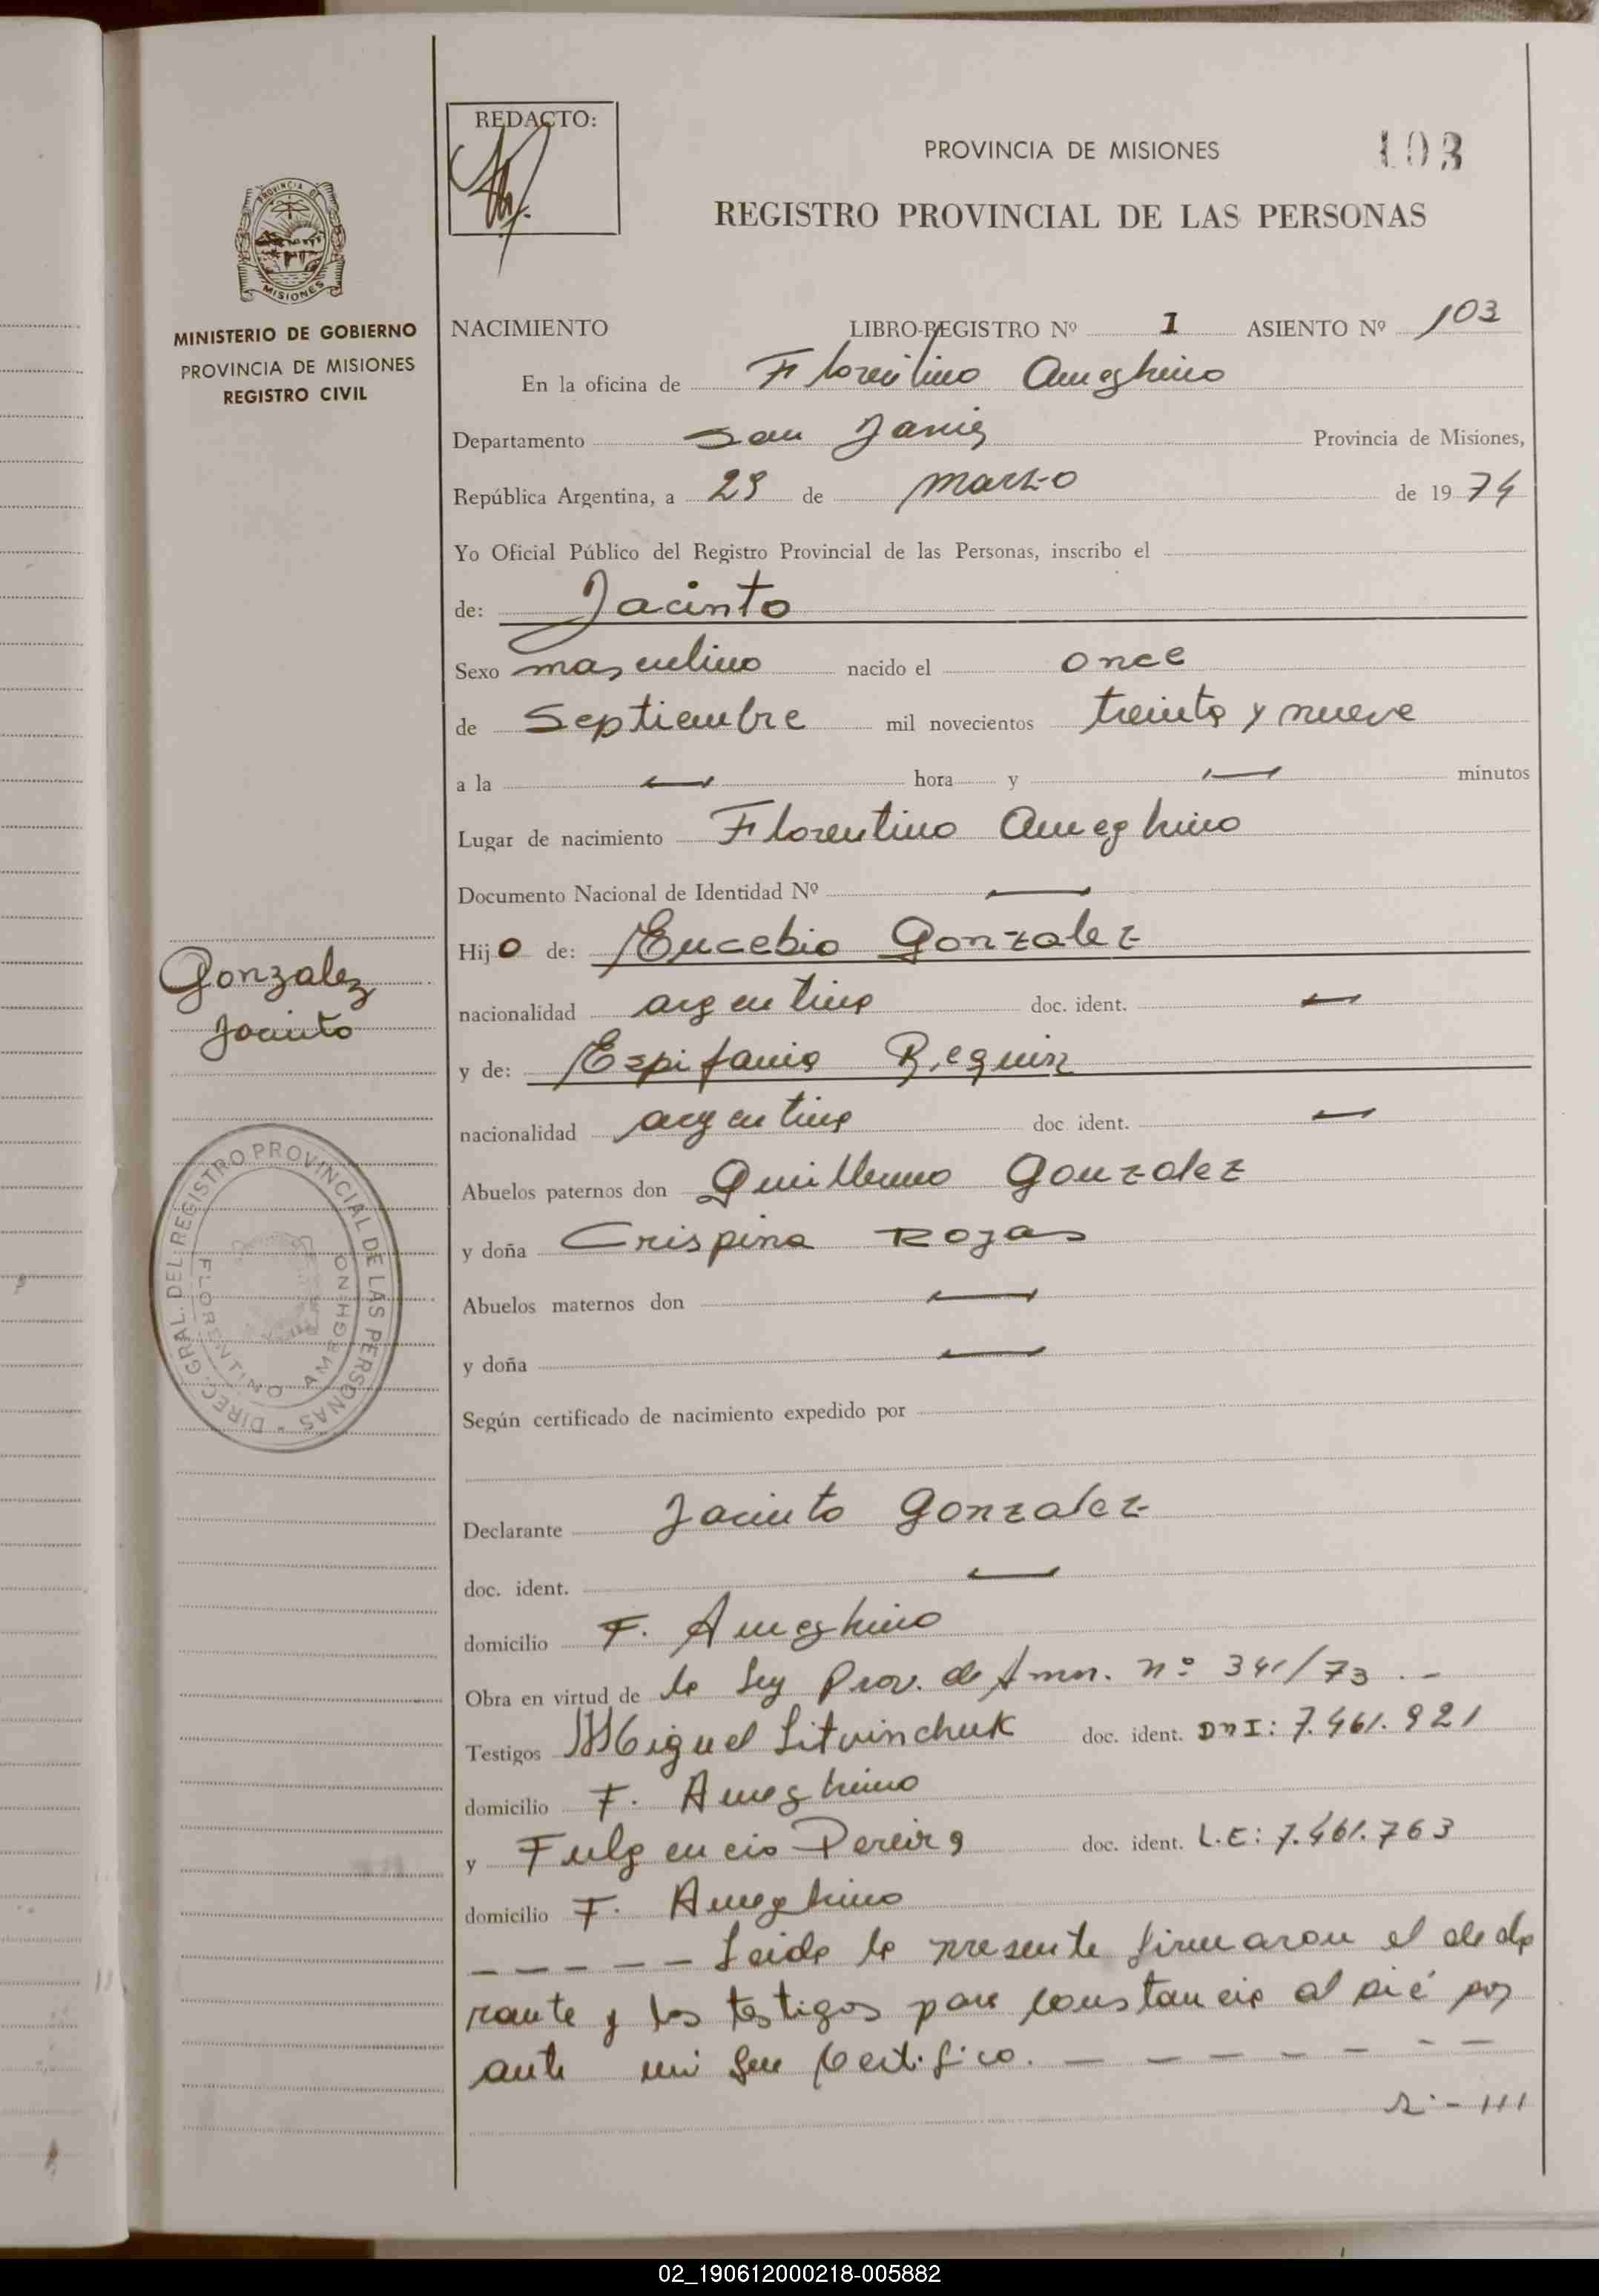 REDACTO:
PROVINCIA DE MISIONES
103
REGISTRO PROVINCIAL DE LAS PERSONAS
PROVINCIA DE MISIONES
MINISTERIO DE GOBIERNO
PROVINCIA DE MISIONES
REGISTRO CIVIL
NACIMIENTO LIBRO-REGISTRO Nº 1 ASIENTO Nº 103
En la oficina de Florentino Ameghino
Departamento San Javier Provincia de Misiones,
República Argentina, a 29 de marzo de 1974
Yo Oficial Público del Registro Provincial de las Personas, inscribo el
de: Jacinto
Sexo masculino nacido el once
de Septiembre mil novecientos treinta y nueve
a la — hora y — minutos
Lugar de nacimiento Florentino Ameghino
Documento Nacional de Identidad Nº —
Hijo de: Eucebio Gonzalez
nacionalidad argentina doc. ident. —
y de: Espifania
nacionalidad argentina doc. ident. —
Abuelos paternos don Guillermo Gonzalez
y doña Crispina Rojas
Abuelos maternos don —
y doña —
Según certificado de nacimiento expedido por
Declarante Jacinto Gonzalez
doc. ident. —
domicilio F. Ameghino
Obra en virtud de la Ley Prov. de Amn. nº 341/73 . -
Testigos Miguel Litvinchuk doc. ident. DnI: 7.461.921
domicilio F. Ameghino
y Fulgencio Pereira doc. ident. L.E: 7.461.763
domicilio F. Ameghino
— — — — — Leida la presente firmaron el decla
rante y los testigos para constancia al pié por
ante mi que Certifico. — — — — — — —
- 111
Gonzalez
Jacinto
DIREC. GRAL. DEL REGISTRO PROVINCIAL DE LAS PERSONAS
FLORENTINO AMEGHINO
02_190612000218-005882